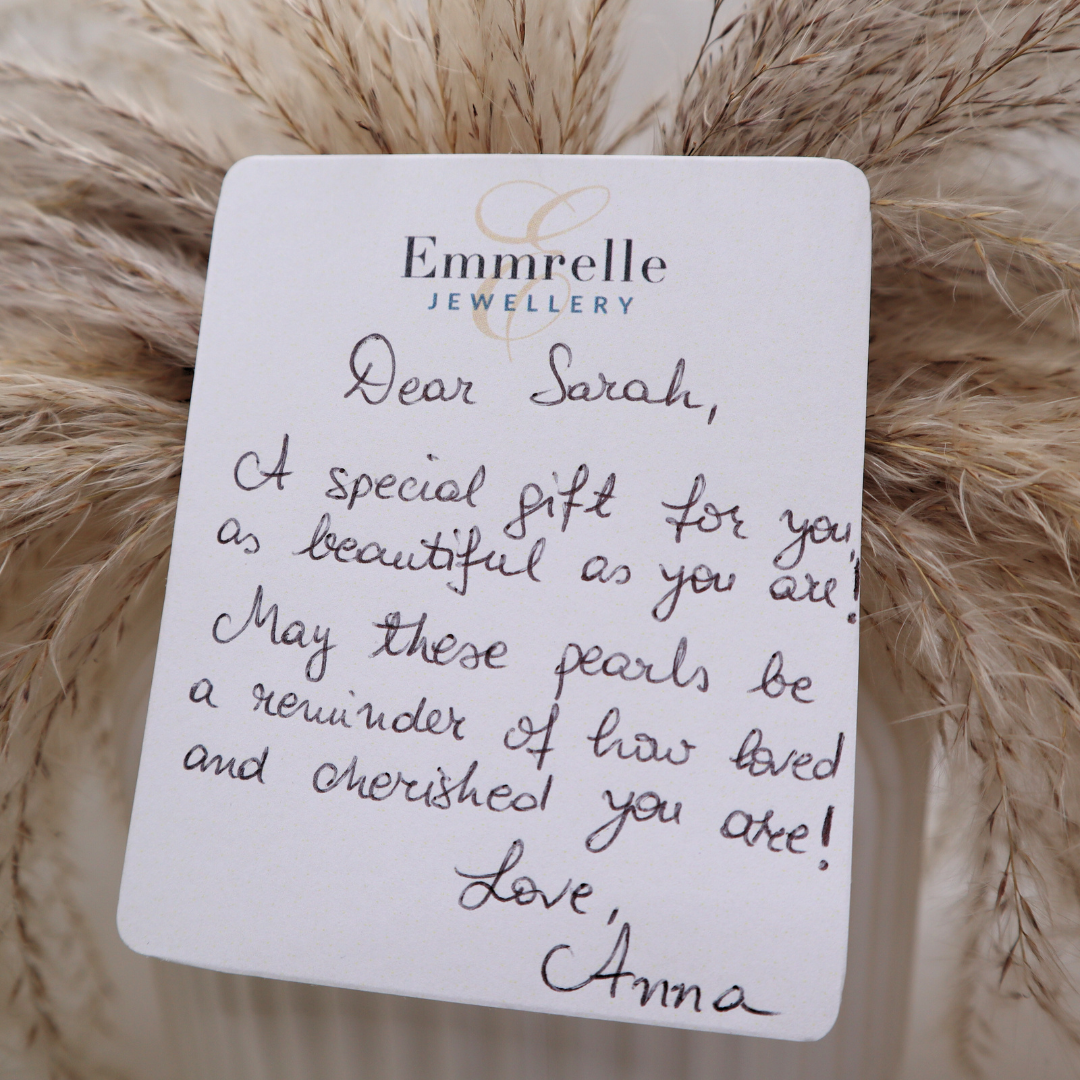 Emmrelle
JEWELLERY
Dear Sarah,
A special gift for you,
as beautiful as you are!
May these pearls be
a reminder of how loved
and cherished you are!
Love,
Anna